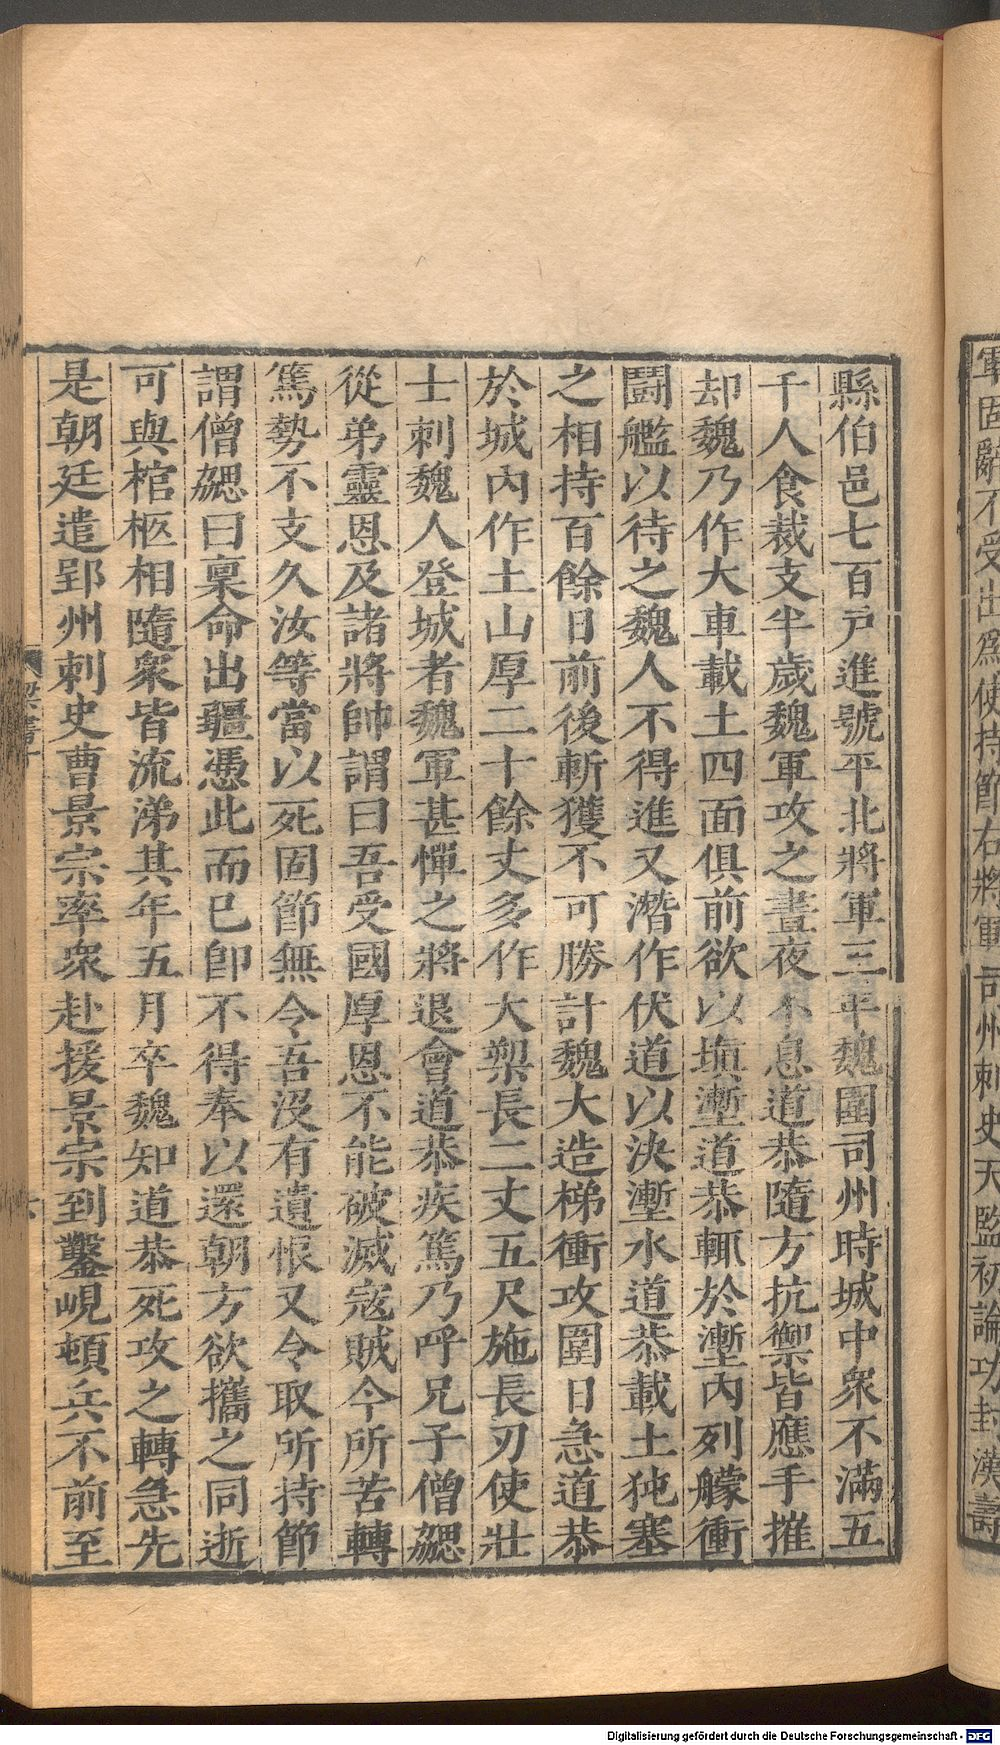 軍固辭不受出爲使持節右將軍司州刺史天監初論功封漢壽
縣伯邑七百戸進號平北將軍三年魏圍司州時城中衆不滿五
千人食裁支半歲魏軍攻之晝夜不息道恭隨方抗禦皆應手摧
却魏乃作大車載土四面俱前欲以塡塹道恭輒於塹內列艨衝
鬪艦以待之魏人不得進又潛作伏道以決塹水道恭載土㹠塞
之相持百餘日前後斬獲不可勝計魏大造梯衝攻圍日急道恭
於城內作土山厚二十餘丈多作大槊長二丈五尺施長刃使壯
士刺魏人登城者魏軍甚憚之將退會道恭疾篤乃呼兄子僧勰
從弟靈恩及諸將帥謂曰吾受國厚恩不能破滅寇賊今所苦轉
篤勢不支久汝等當以死固節無令吾沒有遺恨又令取所持節
謂僧勰曰稟命出疆憑此而已卽不得奉以還朝方欲攜之同逝
可與棺柩相隨衆皆流涕其年五月卒魏知道恭死攻之轉急先
是朝廷遣郢州刺史曹景宗率衆赴援景宗到鑿峴頓兵不前至
梁書
Digitalisierung gefördert durch die Deutsche Forschungsgemeinschaft - DFG